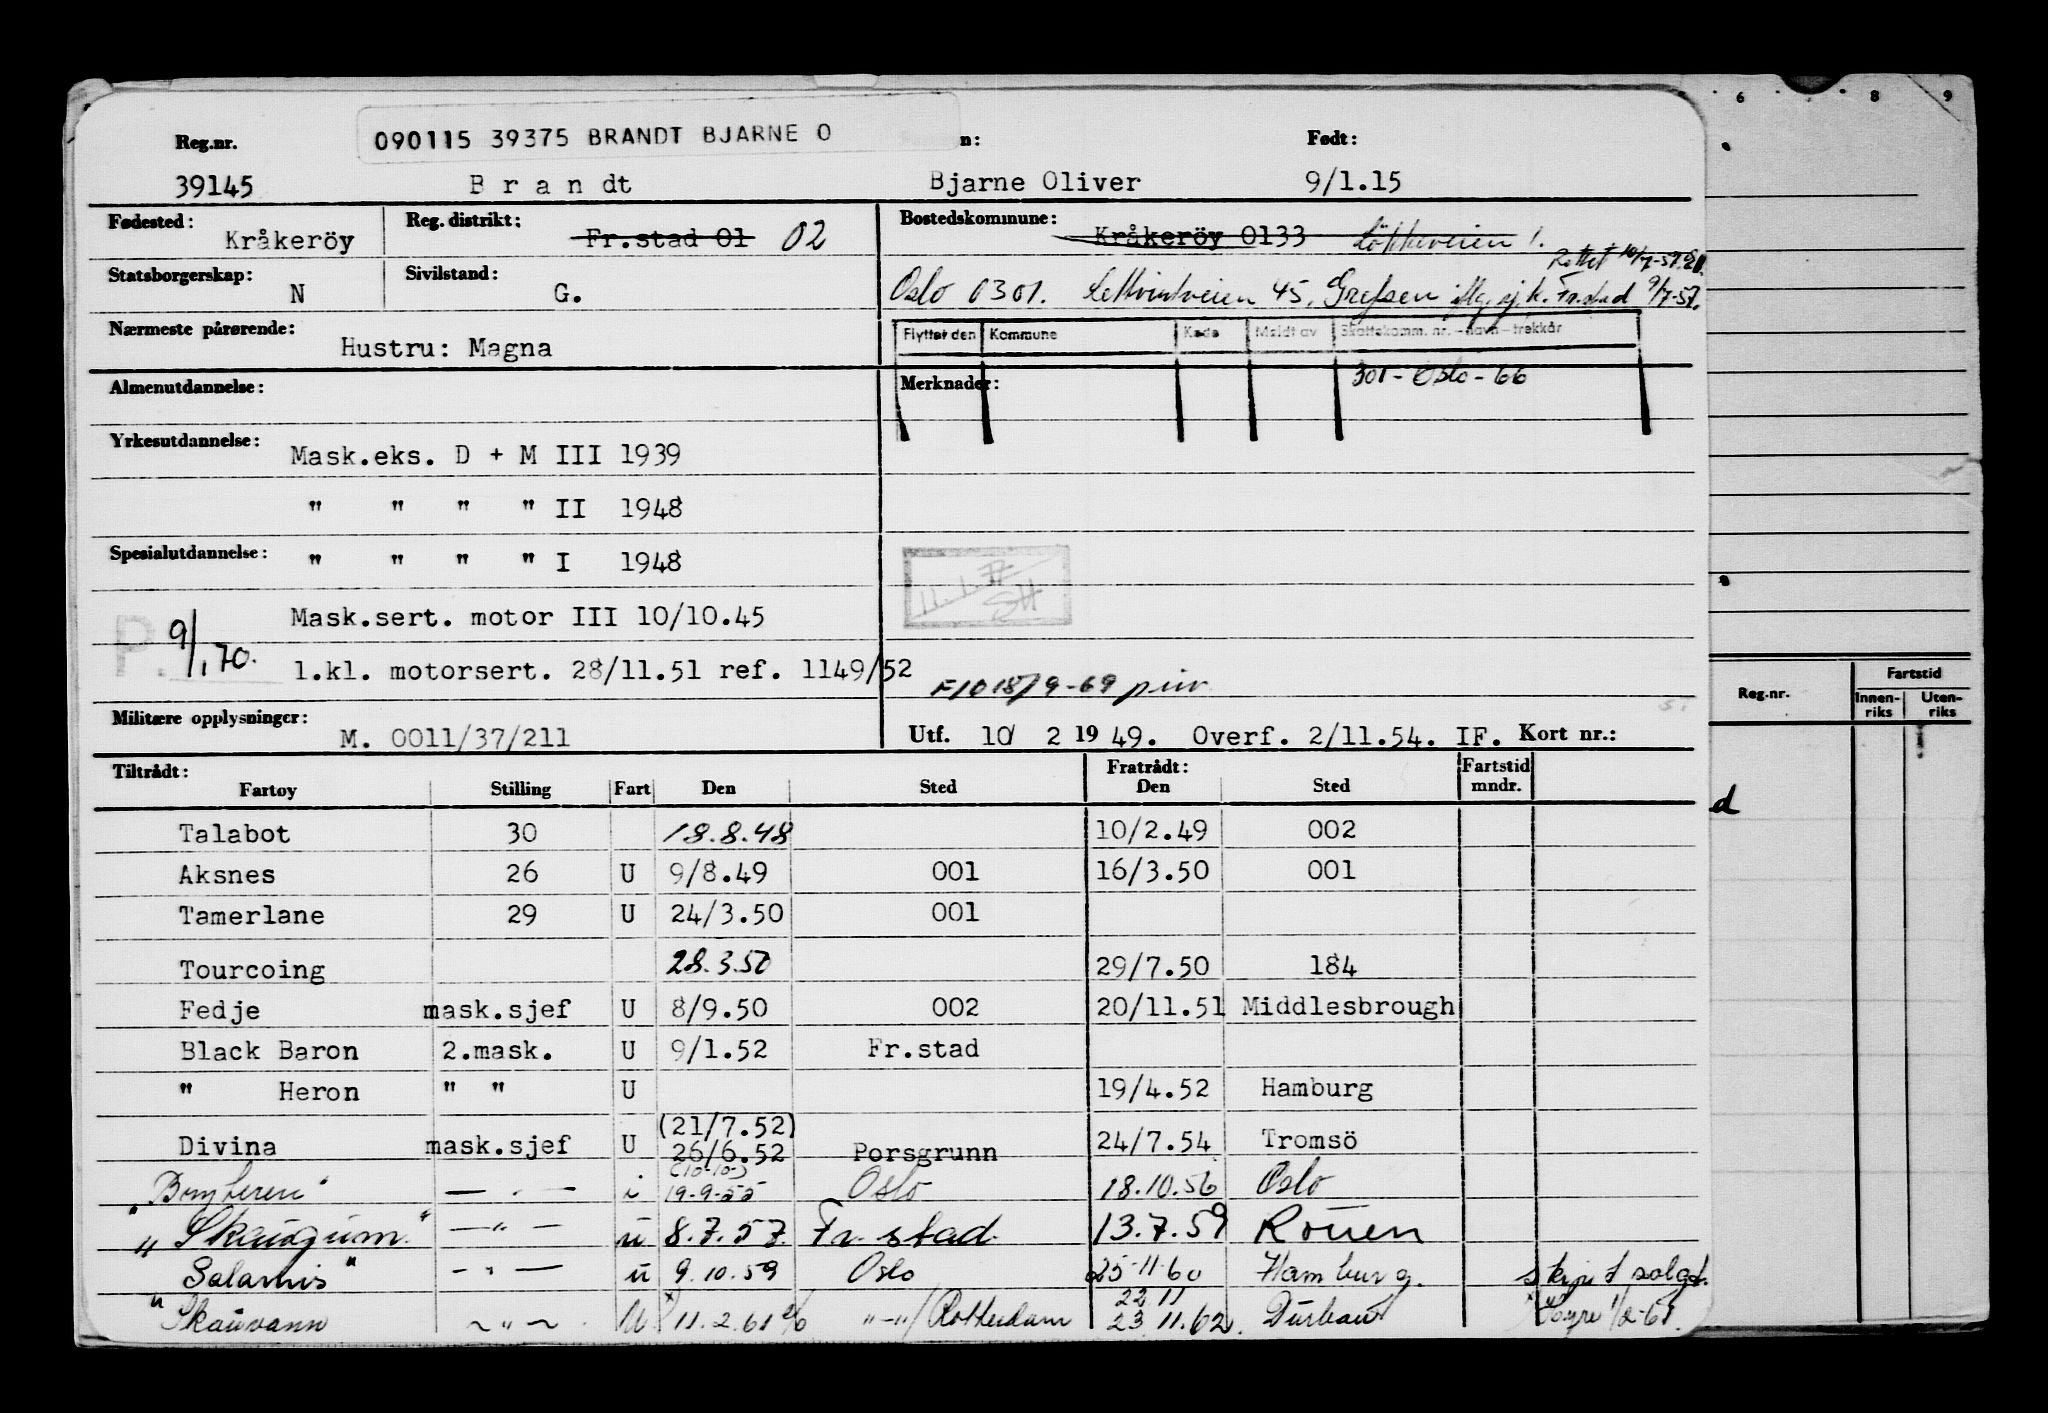 6 8 9
090115 39375 BRANDT BJARNE O
Reg.nr. n: Født:
39145 B r a n dt Bjarne Oliver 9/1.15
Fødested: Kråkeröy Reg. distrikt: Fr.stad 01 02 Bostedskommune: Kråkeröy 0133
Rettet 10/7-59
Statsborgerskap: N Sivilstand: G. Oslo 0301. 45, Grefsen iflg. sj.k. Fr.stad 9/7-57.
Nærmeste pårørende: Hustru: Magna
Flyttet den Kommune Kode Meldt av Skattekomm. nr. - navn - trekkår
Almenutdannelse: Merknader: 301 - Oslo - 66
Yrkesutdannelse: Mask.eks. D + M III 1939
" " " " II 1948
Spesialutdannelse: " " " " I 1948
Mask.sert. motor III 10/10.45
P. 9/1.70.
1.kl. motorsert. 28/11.51 ref. 1149/52
Reg.nr. Fartstid
Innen-riks Uten-riks
Militære opplysninger: M. 0011/37/211 Utf. 10/ 2 19 49. Overf. 2/11.54. IF. Kort nr.:
Tiltrådt: Fratrådt: Fartstid
Fartøy Stilling Fart Den Sted Den Sted mndr.
d
Talabot 30 18.8.48 10/2.49 002
Aksnes 26 U 9/8.49 001 16/3.50 001
Tamerlane 29 U 24/3.50 001
Tourcoing 28.3.50 29/7.50 184
Fedje mask.sjef U 8/9.50 002 20/11.51 Middlesbrough
Black Baron 2.mask. U 9/1.52 Fr.stad
" Heron " " U 19/4.52 Hamburg
(21/7.52)
Divina mask.sjef U 26/6.52 Porsgrunn 24/7.54 Tromsö
(10-10-)
— " — i 19-9-55 Oslo 18.10.56 Oslo
"Skaugum" — " — u 8.7.57 Fr.stad 13.7.59 Rouen
"Salamis" — " — u 9.10.59 Oslo 25-11-60 Hamburg. skipet solgt.
22 11
"Skauvann ~ " ~ U 11.2.61 " - " / Rotterdam 23 11.62. Durban